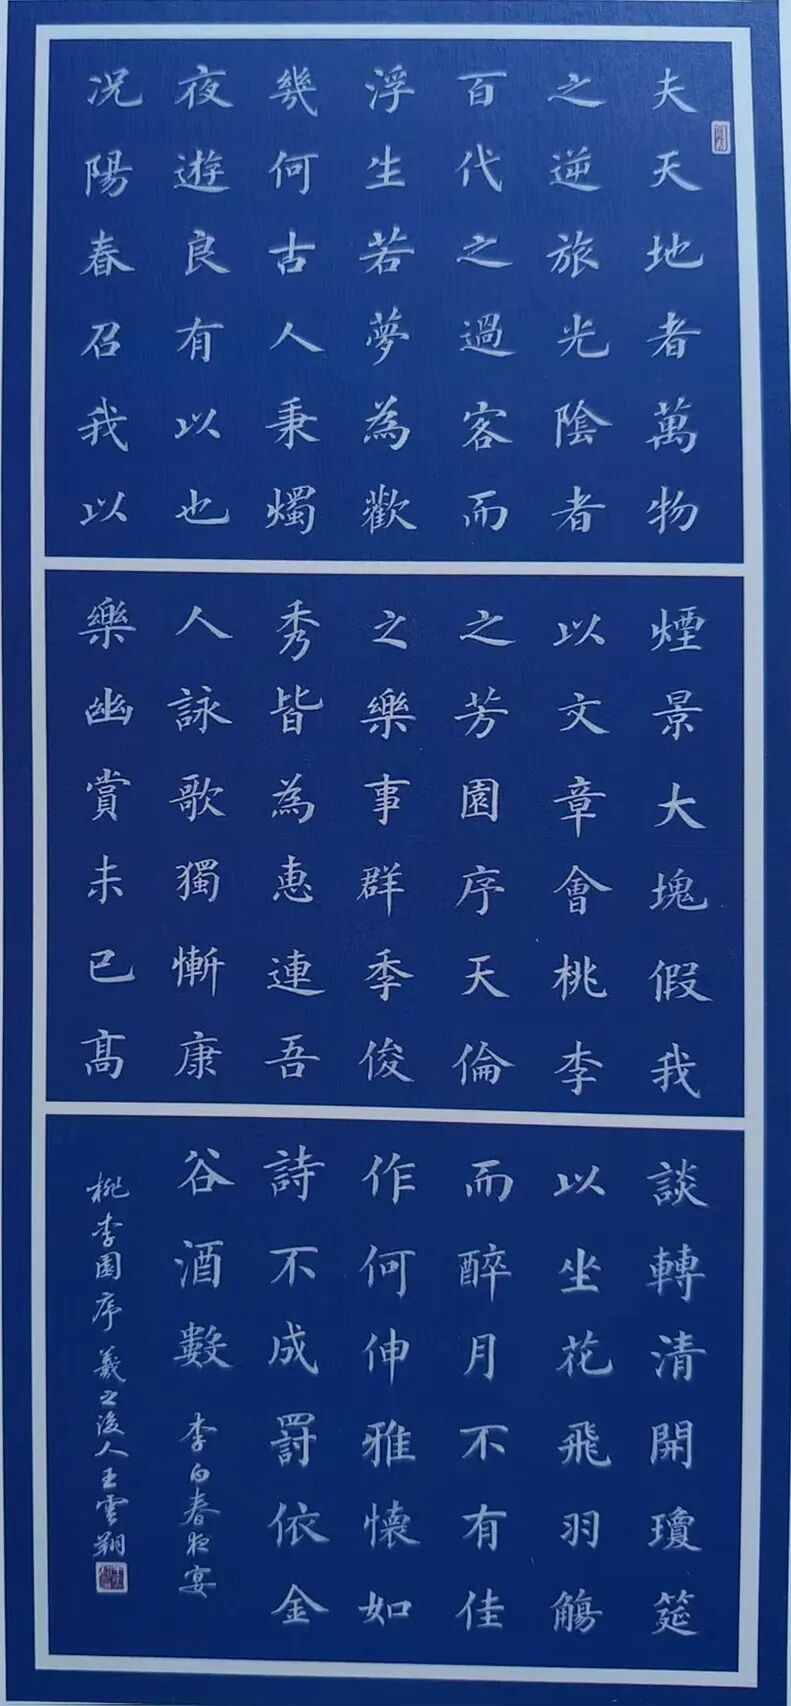 夫天地者萬物
之逆旅光陰者
百代之過客而
浮生若夢為歡
幾何古人秉燭
夜遊良有以也
况陽春召我以
煙景大塊假我
以文章會桃李
之芳園序天倫
之樂事群季俊
秀皆為惠連吾
人詠歌獨慚康
樂幽賞未已髙
談轉清開瓊筵
以坐花飛羽觴
而醉月不有佳
作何伸雅懷如
詩不成罰依金
谷酒數 李白春夜宴
桃李園序 羲之後人王雲翔